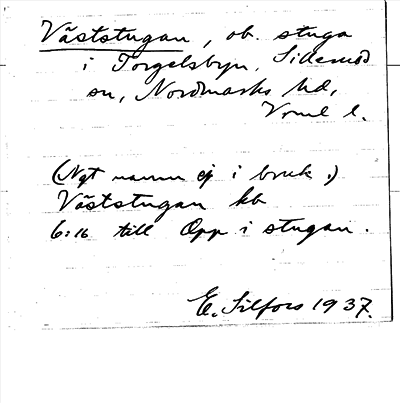 Väststugan, ob. stuga
i Torgelsbyn, Sillerud
sn, Nordmarks hd,
Vrml l.
(Ngt namn ej i bruk.)
Väststugan kb
6:16 till Opp i stugan.
E. Silfors 1937.